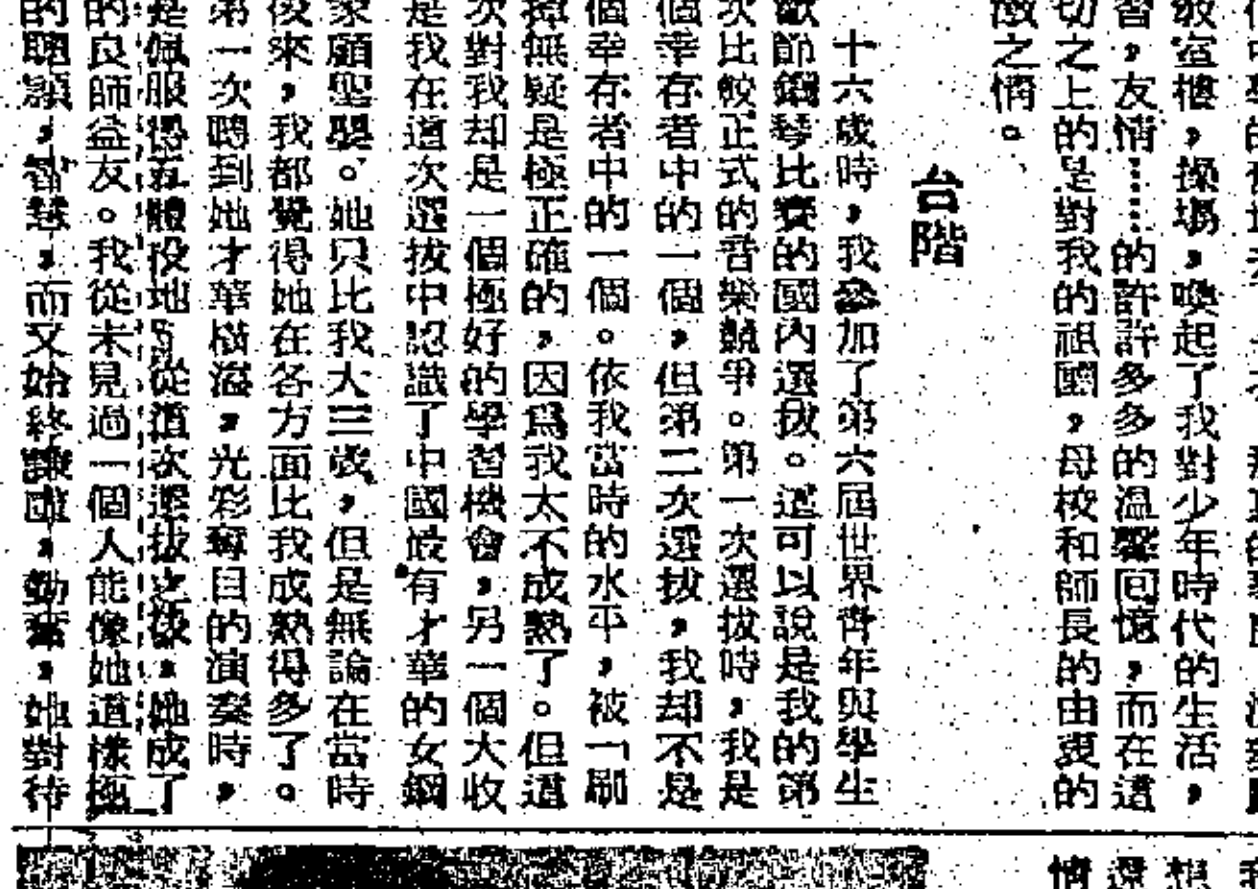 教室樓，操場，喚起了我對少年時代的生活，
習，友情……的許許多多的溫馨回憶，而在這
切之上的是對我的祖國，母校和師長的由衷的
激之情。
台階
十六歲時，我參加了第六屆世界青年與學生
歡節鋼琴比賽的國內選拔。這可以說是我的第
次比較正式的音樂競爭。第一次選拔時，我是
個幸存者中的一個，但第二次選拔，我却不是
個幸存者中的一個。依我當時的水平，被「刷
掉無疑是極正確的，因爲我太不成熟了。但這
次對我却是一個極好的學習機會，另一個大收
是我在這次選拔中認識了中國最有才華的女鋼
家顧聖嬰。她只比我大三歲，但是無論在當時
後來，我都覺得她在各方面比我成熟得多了。
第一次聽到她才華橫溢，光彩奪目的演奏時，
是佩服得五體投地。從這次選拔之後，她成了
的良師益友。我從未見過一個人能像她這樣極
的聰穎，智慧，而又始終謙虛，勤奮，她對待